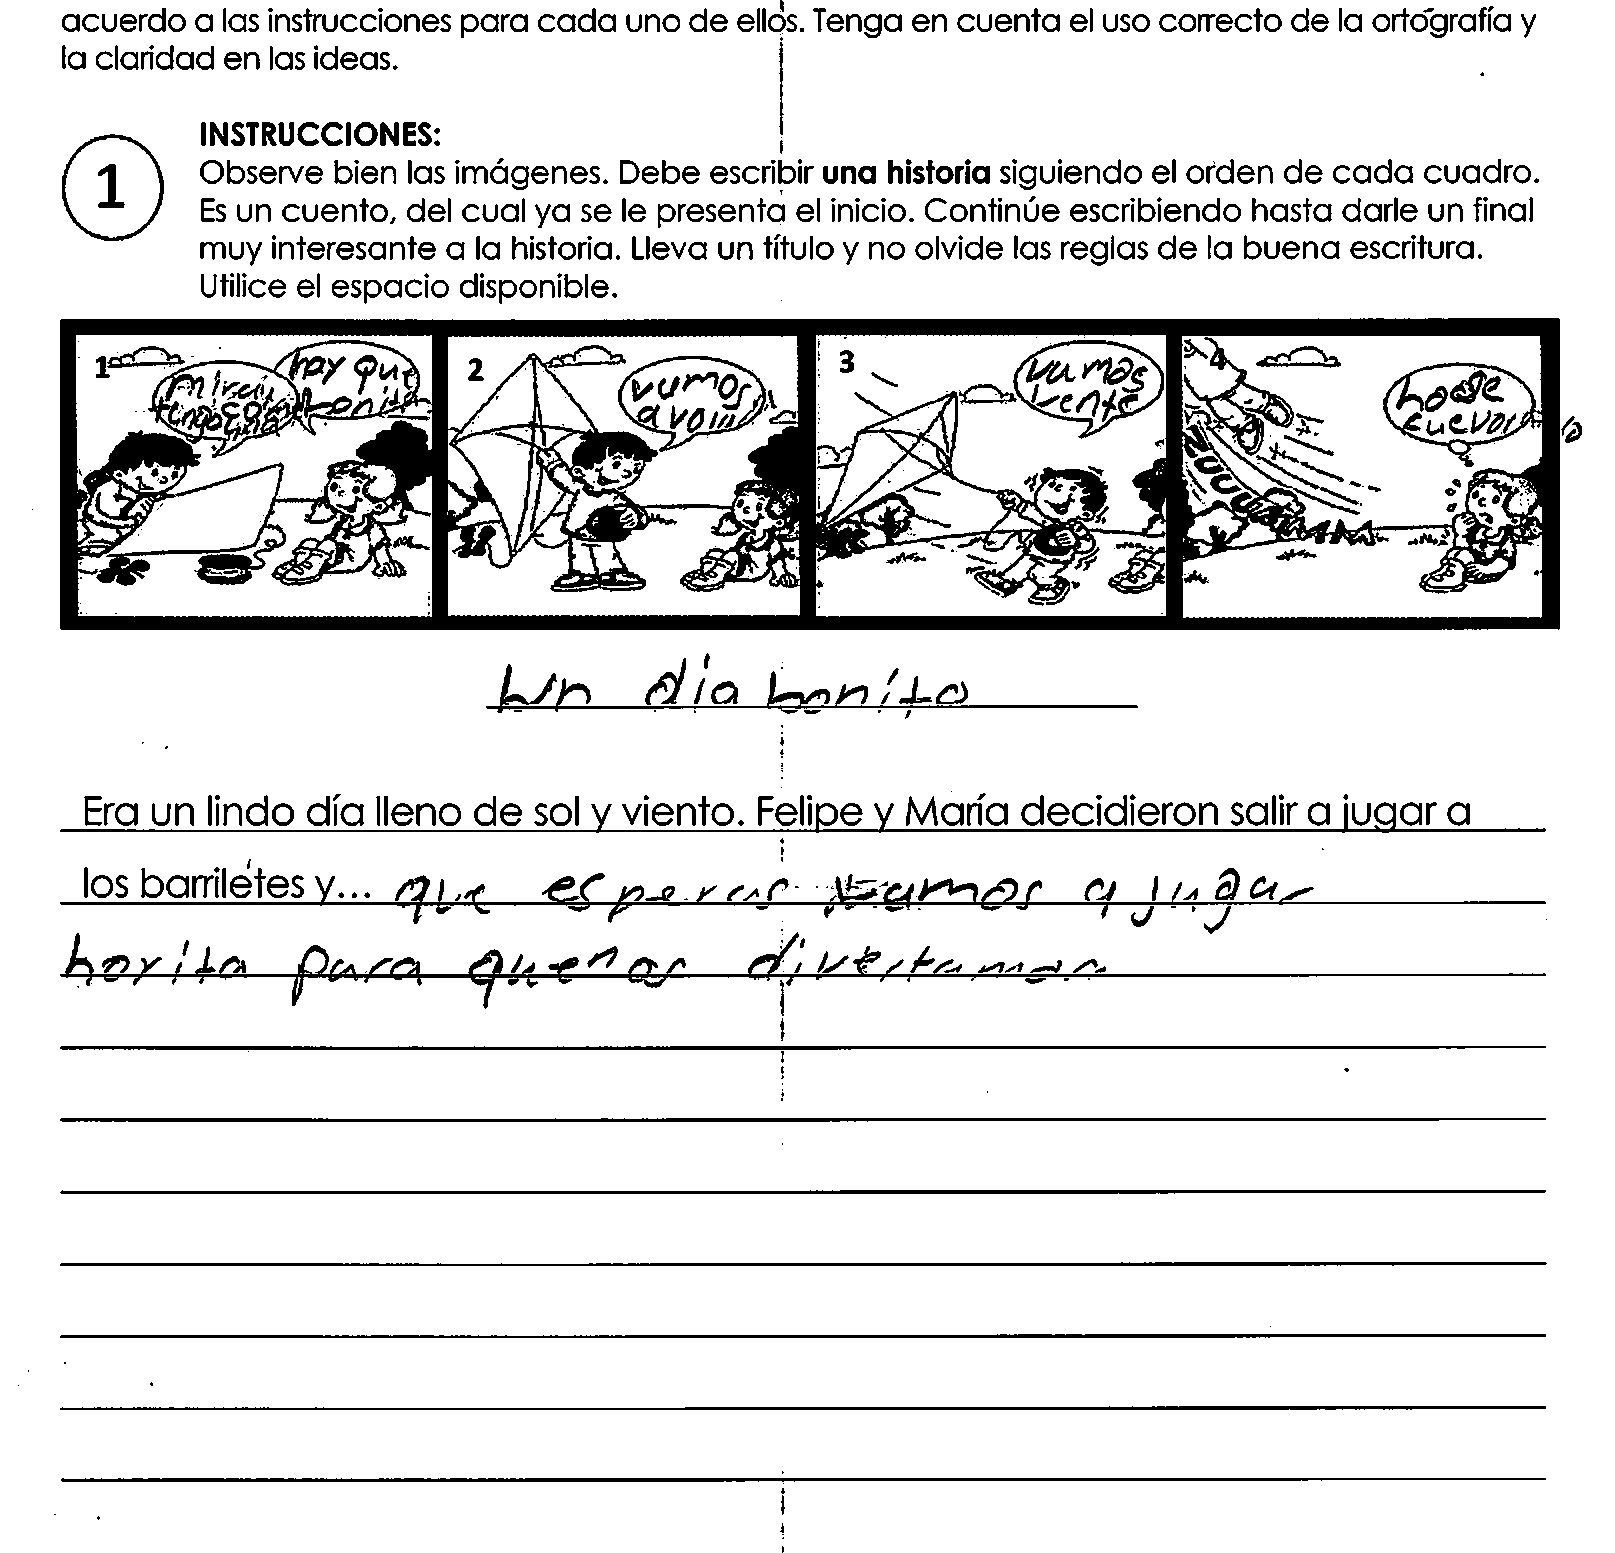 acuerdo a las instrucciones para cada uno de ellos. Tenga en cuenta el uso correcto de la ortografía y
la claridad en las ideas.
1
INSTRUCCIONES:
Observe bien las imágenes. Debe escribir una historia siguiendo el orden de cada cuadro.
Es un cuento, del cual ya se le presenta el inicio. Continúe escribiendo hasta darle un final
muy interesante a la historia. Lleva un título y no olvide las reglas de la buena escritura.
Utilice el espacio disponible.
1
hay que
bonito
2
vamos
3
vamos
vente
4
Un día bonito
Era un lindo día lleno de sol y viento. Felipe y María decidieron salir a jugar a
los barriletes y... que esperas vamos a jugar
horita para que nos divertamos